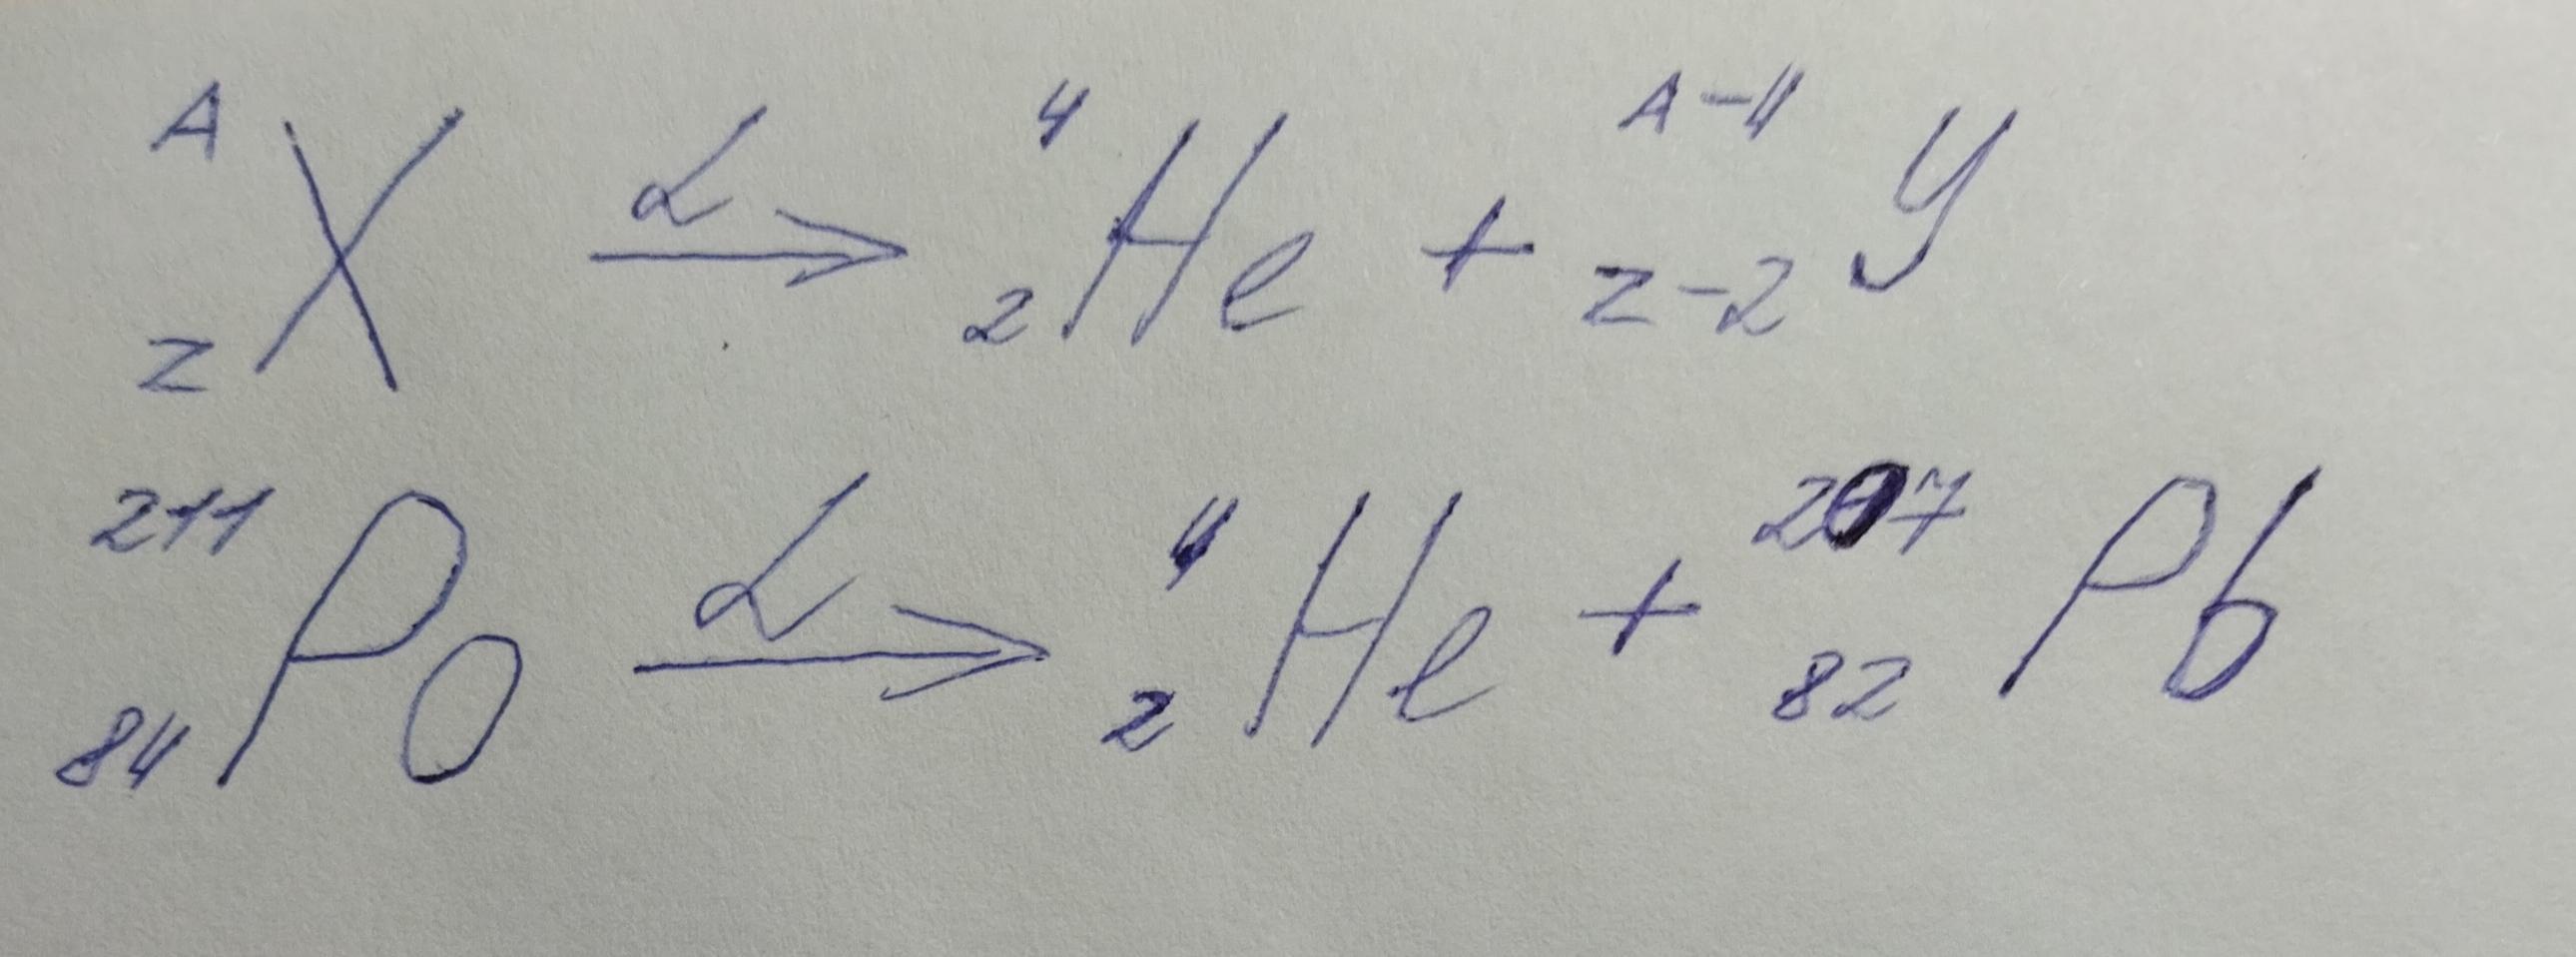 ᴬ_Z X →^α ⁴₂He + ᴬ⁻⁴_Z₋₂ Y
²¹¹₈₄Po →^α ⁴₂He + ²⁰⁷₈₂Pb